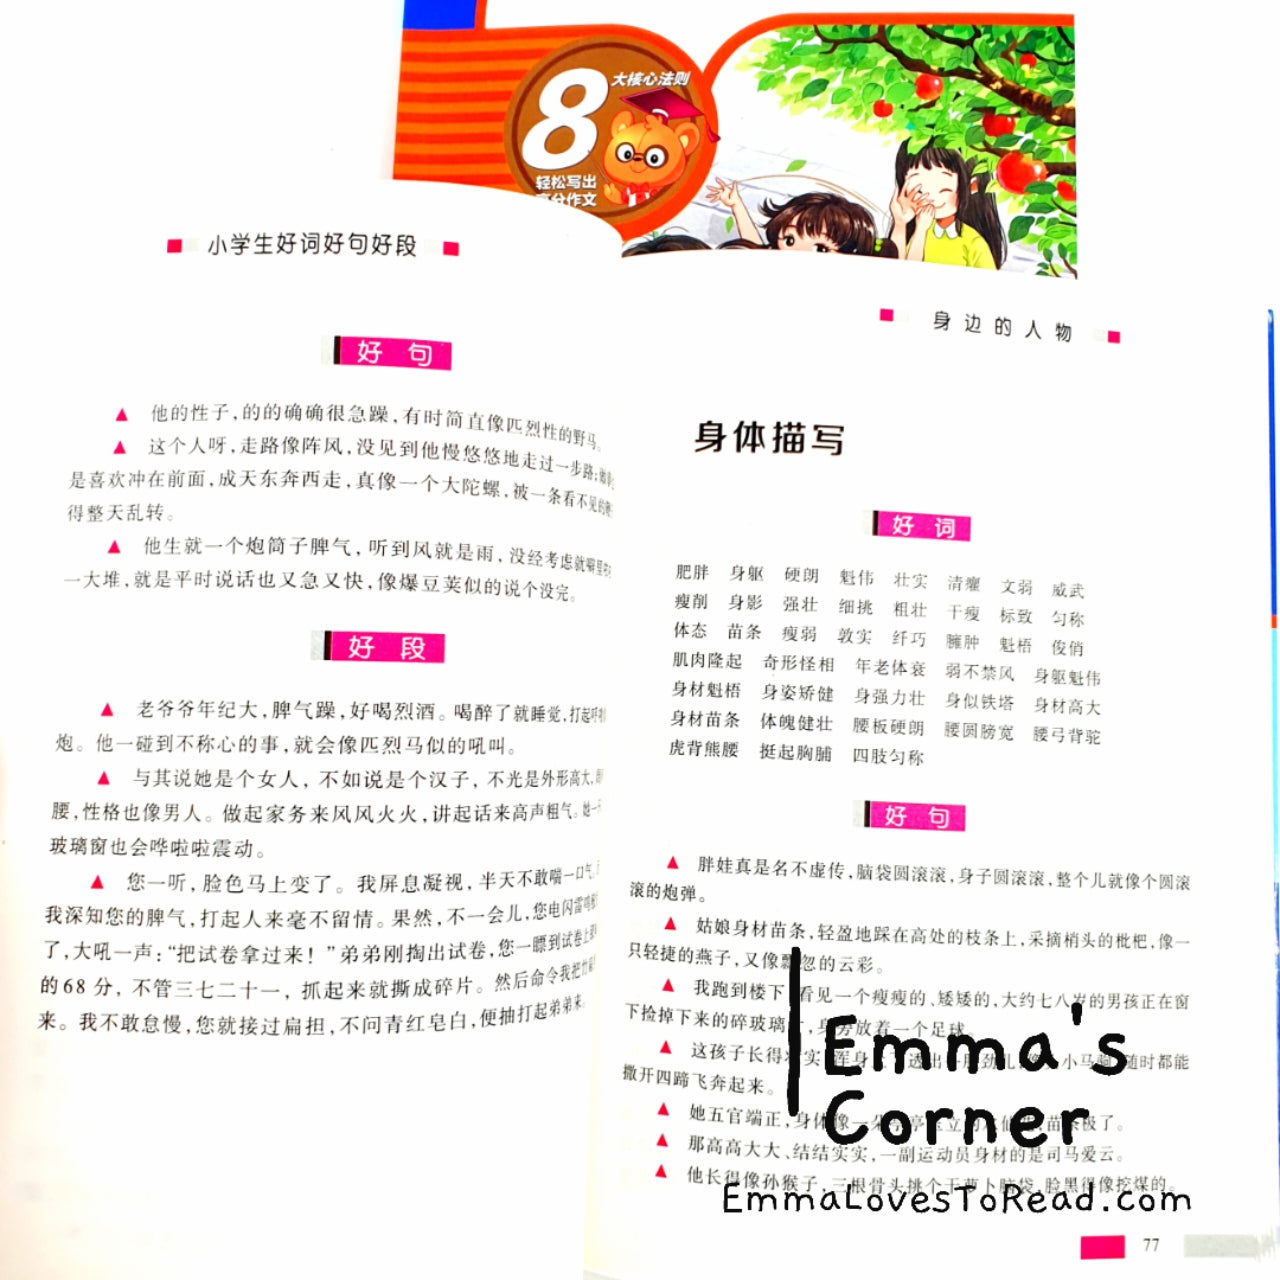 8
大核心法则
轻松写出
高分作文
小学生好词好句好段
好 句
▲ 他的性子，的的确确很急躁，有时简直像匹烈性的野马。
▲ 这个人呀，走路像阵风，没见到他慢悠悠地走过一步路；做事
是喜欢冲在前面，成天东奔西走，真像一个大陀螺，被一条看不见的
得整天乱转。
▲ 他生就一个炮筒子脾气，听到风就是雨，没经考虑就噼里
一大堆，就是平时说话也又急又快，像爆豆荚似的说个没完。
好 段
▲ 老爷爷年纪大，脾气躁，好喝烈酒。喝醉了就睡觉，打起呼
炮。他一碰到不称心的事，就会像匹烈马似的吼叫。
▲ 与其说她是个女人，不如说是个汉子，不光是外形高大，
腰，性格也像男人。做起家务来风风火火，讲起话来高声粗气。她一
玻璃窗也会哗啦啦震动。
▲ 您一听，脸色马上变了。我屏息凝视，半天不敢喘一口气。
我深知您的脾气，打起人来毫不留情。果然，不一会儿，您电闪雷鸣
了，大吼一声：“把试卷拿过来！”弟弟刚掏出试卷，您一瞟到试卷上
的68分，不管三七二十一，抓起来就撕成碎片。然后命令我把竹扁
来。我不敢怠慢，您就接过扁担，不问青红皂白，便抽打起弟弟来。
身边的人物
身体描写
好 词
肥胖 身躯 硬朗 魁伟 壮实 清癯 文弱 威武
瘦削 身影 强壮 细挑 粗壮 干瘦 标致 匀称
体态 苗条 瘦弱 敦实 纤巧 臃肿 魁梧 俊俏
肌肉隆起 奇形怪相 年老体衰 弱不禁风 身躯魁伟
身材魁梧 身姿矫健 身强力壮 身似铁塔 身材高大
身材苗条 体魄健壮 腰板硬朗 腰圆膀宽 腰弓背驼
虎背熊腰 挺起胸脯 四肢匀称
好 句
▲ 胖娃真是名不虚传，脑袋圆滚滚，身子圆滚滚，整个儿就像个圆滚
滚的炮弹。
▲ 姑娘身材苗条，轻盈地踩在高处的枝条上，采摘梢头的枇杷，像一
只轻捷的燕子，又像飘忽的云彩。
▲ 我跑到楼下，看见一个瘦瘦的、矮矮的，大约七八岁的男孩正在窗
下捡掉下来的碎玻璃片，身旁放着一个足球。
▲ 这孩子长得壮实，浑身上下透出 小马驹，随时都能
撒开四蹄飞奔起来。
▲ 她五官端正，身体像一朵亭亭玉立的水仙花，苗条极了。
▲ 那高高大大、结结实实，一副运动员身材的是司马爱云。
▲ 他长得像孙猴子，三根骨头挑个干萝卜脑袋，脸黑得像挖煤的。
Emma's
Corner
EmmaLovesToRead.com
77